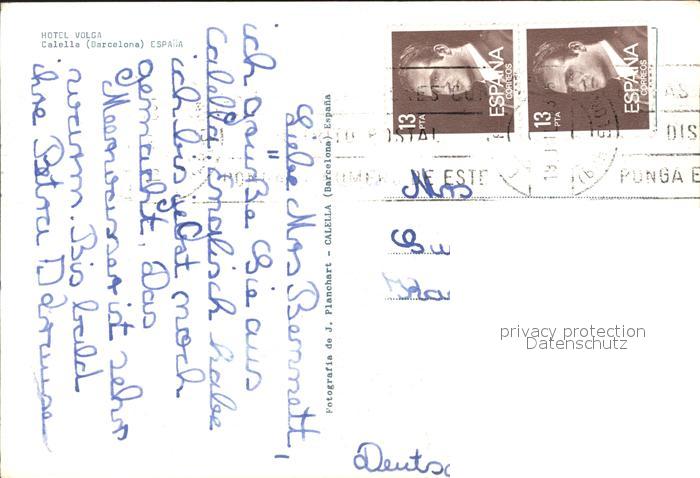 HOTEL VOLGA
Calella (Barcelona) ESPAÑA
Liebe Mrs Bennett,
ich grüße Sie aus
Calella. Englisch habe
ich bis jetzt noch
gemacht. Das
Meerwasser ist sehr
warm. Bis bald
ihre Petra
Fotografía de J. Planchart - CALELLA (Barcelona) España
13 PTA
ESPAÑA
CORREOS
13 PTA
ESPAÑA
CORREOS
POSTAL
DIS
DE ESTE
PONGA E
Mrs
privacy protection
Datenschutz
Deutsc